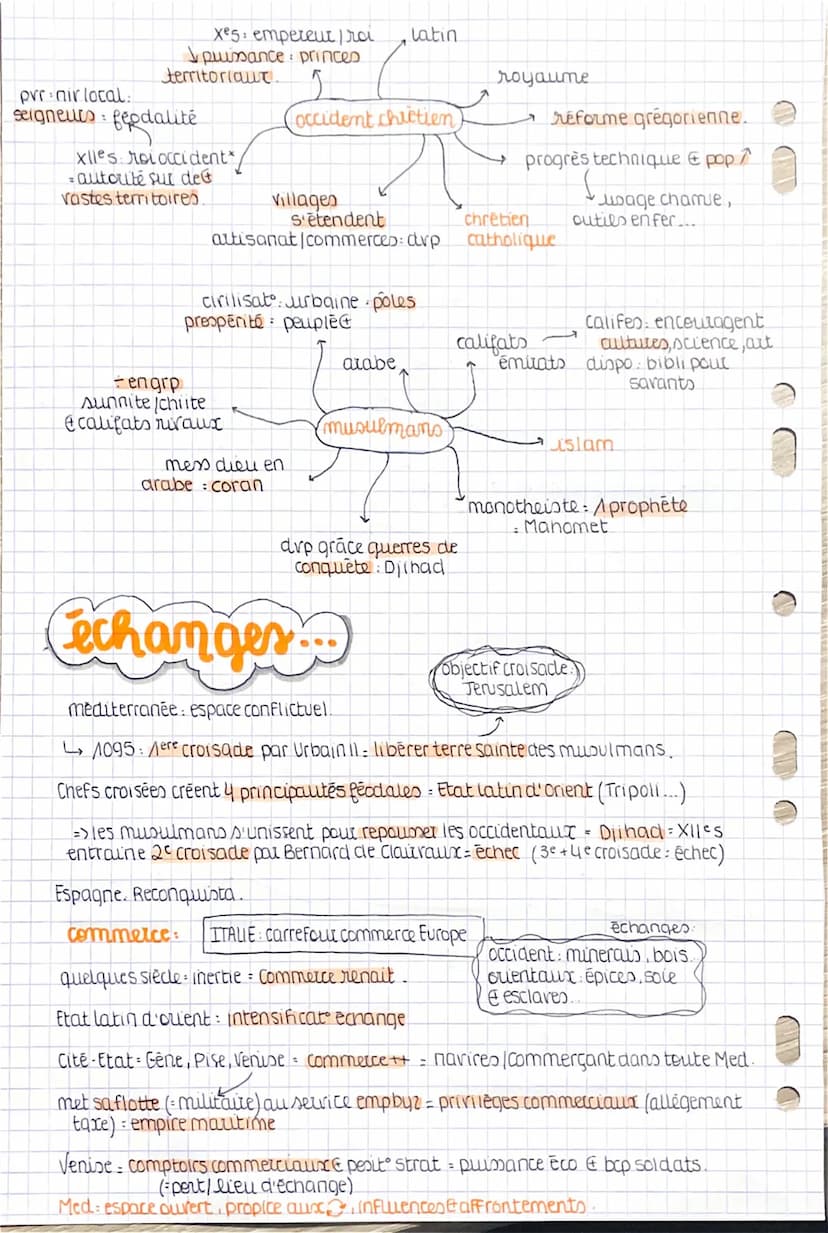 Xes : empereur/roi
↓ puissance : princes
territoriaux.
latin
royaume
pvr : niv local :
seigneurs : féodalité
occident chrétien
réforme grégorienne.
XIIes : roi occident*
= autorité sur de⊕
vastes territoires.
progrès technique & pop ↗
↳ usage charrue,
outils en fer...
villages
s'étendent
artisanat/commerces : dvp
chrétien
catholique
civilisat° : urbaine . pôles
prospérité = peuplé⊕
califats
émirats
califes : encouragent
cultures, science, art
dispo : bibli pour
savants
arabe
÷ en grp
sunnite/chiite
& califats rivaux
musulmans
islam
mess dieu en
arabe = coran
monotheiste = 1 prophète
= Mahomet
dvp grâce guerres de
conquête : Djihad
échanges...
objectif croisade :
Jerusalem
méditerranée : espace conflictuel.
↳ 1095 : 1ère croisade par Urbain II = libérer terre sainte des musulmans.
Chefs croisées créent 4 principautés féodales = Etat latin d'Orient (Tripoli...)
=> les musulmans s'unissent pour repousser les occidentaux = Djihad = XIIes
entraine 2e croisade par Bernard de Clairvaux = échec (3e + 4e croisade : échec)
Espagne. Reconquista.
commerce :
ITALIE : carrefour commerce Europe
échanges :
occident : minerais, bois.
orientaux : épices, soie
& esclaves...
quelques siècle = inertie = commerce renait.
Etat latin d'orient : intensificat° échange
Cité-Etat = Gêne, Pise, Venise = commerce ++ = navires/commerçant dans toute Med.
met sa flotte (= militaire) au service emp byz = privilèges commerciaux (allégement
taxe) = empire maritime
Venise = comptoirs commerciaux & posit° strat = puissance éco & bcp soldats.
(= port/lieu d'échange)
Med = espace ouvert, propice aux ⟳, influences & affrontements.